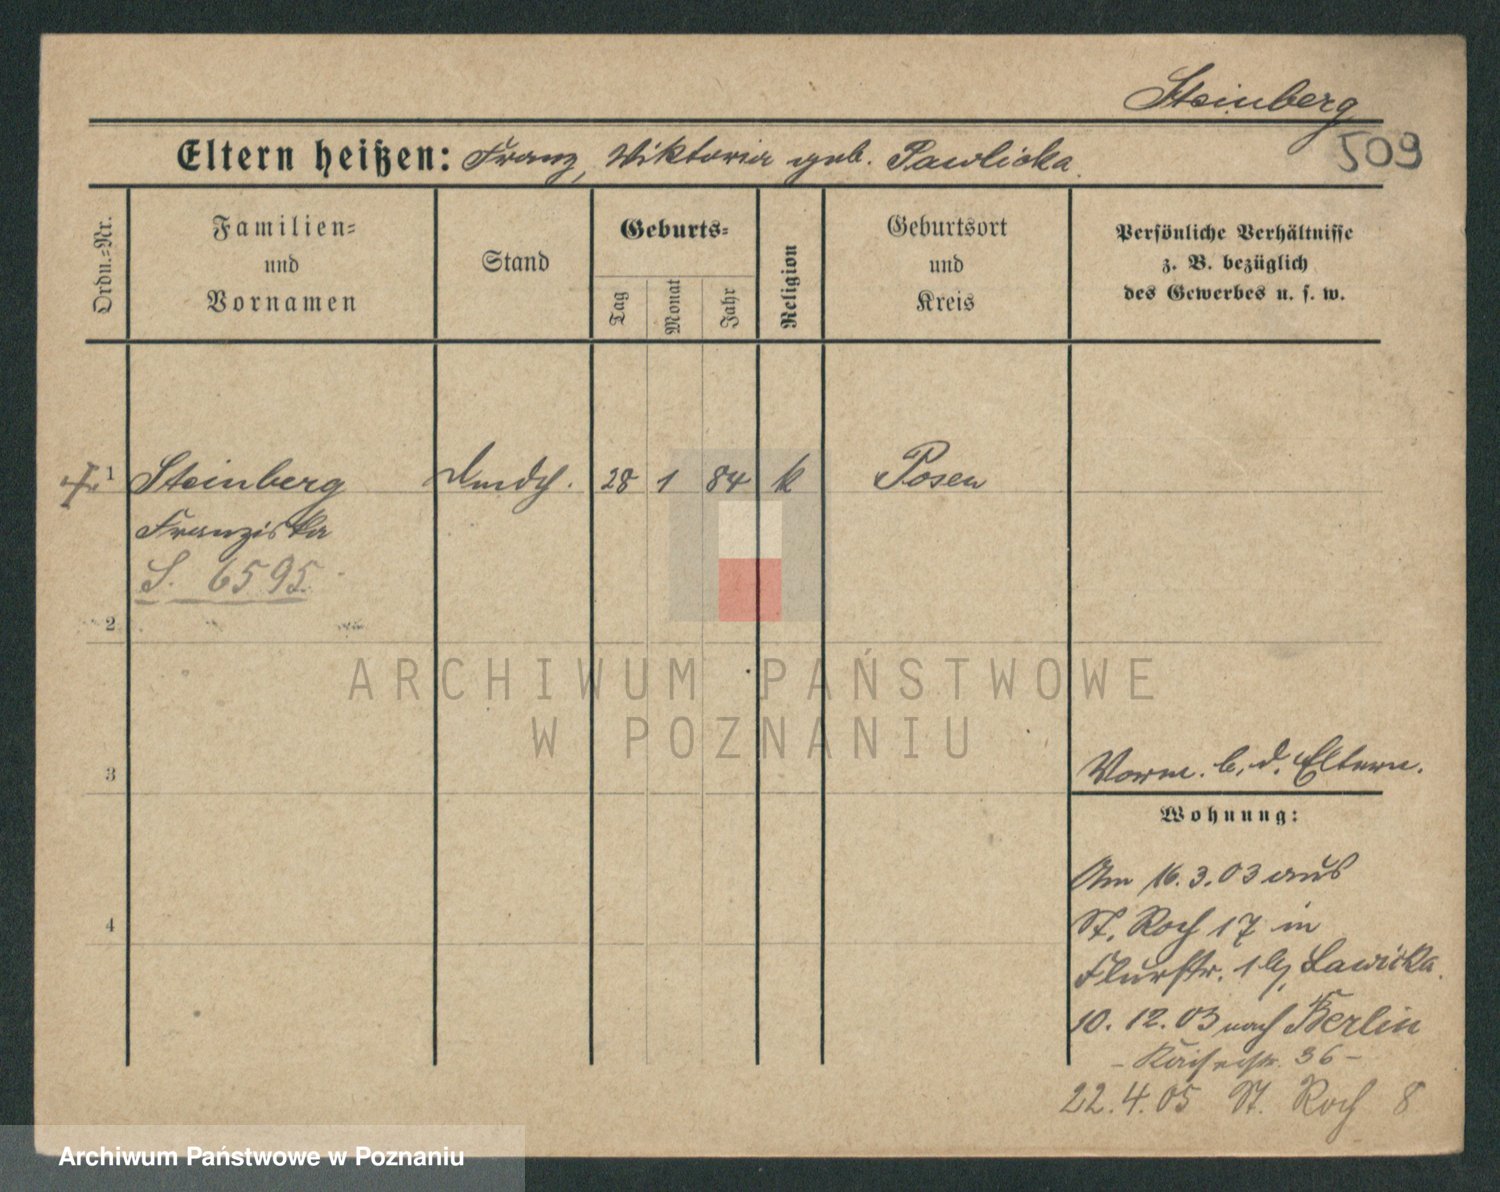 Steinberg
509
Eltern heißen: Franz, Viktoria geb. Pawlicka.
Ordn.=Nr.
Familien=
und
Vornamen
Stand
Geburts=
Tag
Monat
Jahr
Religion
Geburtsort
und
Kreis
Persönliche Verhältnisse
z. B. bezüglich
des Gewerbes u. s. w.
1 Steinberg 28 1 84 k Posen
Franziska
S. 6595
2
ARCHIWUM PAŃSTWOWE
W POZNANIU
3
Vorm. b. d. Eltern.
Wohnung:
Am 16.3.03 aus
St. Roch 17 in
Flurstr. 1 Lawicka.
4
10.12.03 nach Berlin
36 -
22.4.05 St. Roch 8
Archiwum Państwowe w Poznaniu